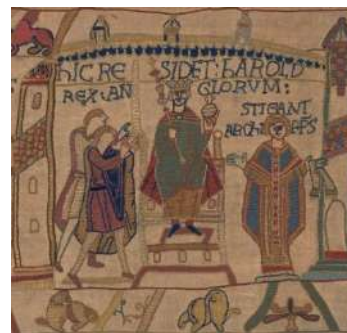 hIC RE SIDET: hAROLD
REX: AN GLORVM:
STIGANT
ARChI EPS